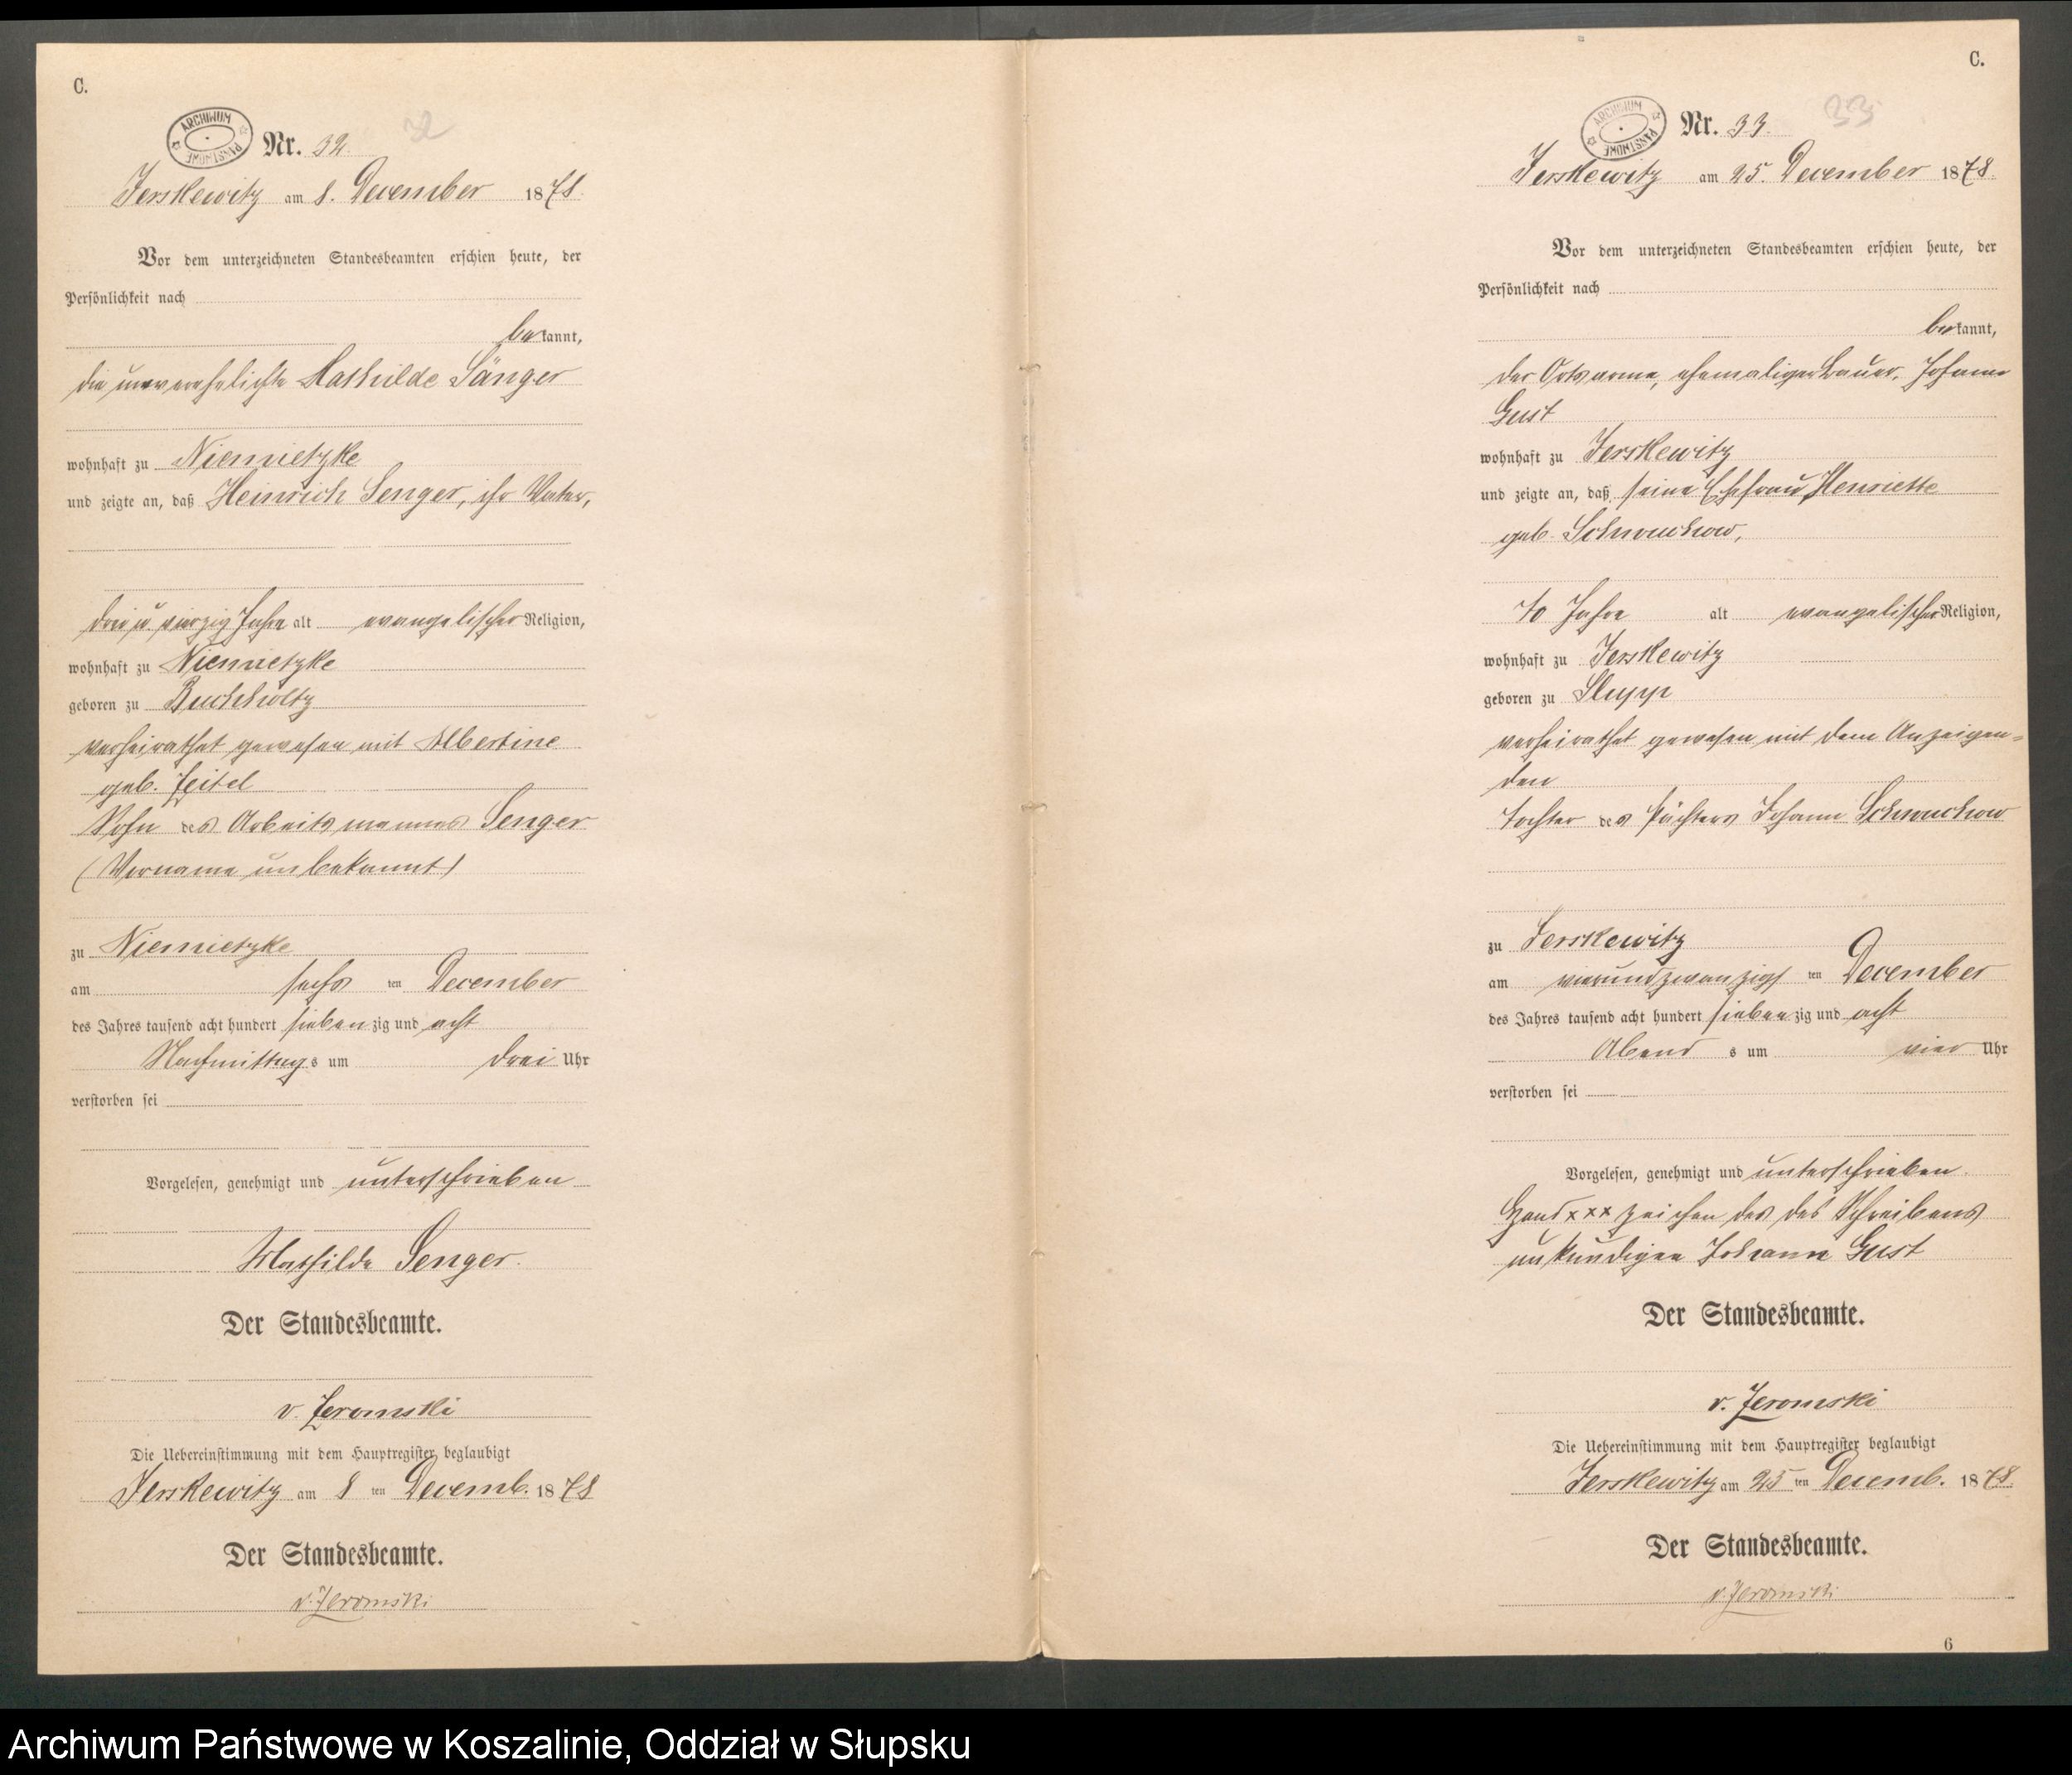 C.
ARCHIWUM PAŃSTWOWE
Nr. 32.
32
Jerskewitz am 8. December 1878.
Vor dem unterzeichneten Standesbeamten erschien heute, der
Persönlichkeit nach
bekannt,
die unverehelichte Mathilde Sänger
wohnhaft zu Niemietzke
und zeigte an, daß Heinrich Senger, ihr Vater,
drei u. vierzig Jahre alt evangelischer Religion,
wohnhaft zu Niemietzke
geboren zu Buchholtz
verheirathet gewesen mit Albertine
geb. Zeitel
Sohn des Arbeitsmannes Senger
(Vorname unbekannt)
zu Niemietzke
am sechs ten December
des Jahres tausend acht hundert siebenzig und acht
Nachmittags um drei Uhr
verstorben sei
Vorgelesen, genehmigt und unterschrieben
Mathilde Senger.
Der Standesbeamte.
v. Jeromski
Die Uebereinstimmung mit dem Hauptregister beglaubigt
Jerskewitz am 8 ten Decemb. 1878
Der Standesbeamte.
v. Jeromski
C.
ARCHIWUM PAŃSTWOWE
Nr. 33.
33
Jerskewitz am 25. December 1878.
Vor dem unterzeichneten Standesbeamten erschien heute, der
Persönlichkeit nach
bekannt,
der Ortsarme, ehemaliger Bauer, Johann
Gust
wohnhaft zu Jerskewitz
und zeigte an, daß seine Ehefrau Henriette
geb. Schmuckow,
70 Jahre alt evangelischer Religion,
wohnhaft zu Jerskewitz
geboren zu Stupp
verheirathet gewesen mit dem Anzeigen-
den
Tochter des Pächters Johann Schmuckow
zu Jerskewitz
am vierundzwanzigsten December
des Jahres tausend acht hundert siebenzig und acht
Abends um vier Uhr
verstorben sei
Vorgelesen, genehmigt und unterschrieben.
Handxxxzeichen des des Schreibens
unkundigen Johann Gust
Der Standesbeamte.
v. Jeromski
Die Uebereinstimmung mit dem Hauptregister beglaubigt
Jerskewitz am 25 ten Decemb. 1878.
Der Standesbeamte.
v. Jeromski
6
Archiwum Państwowe w Koszalinie, Oddział w Słupsku